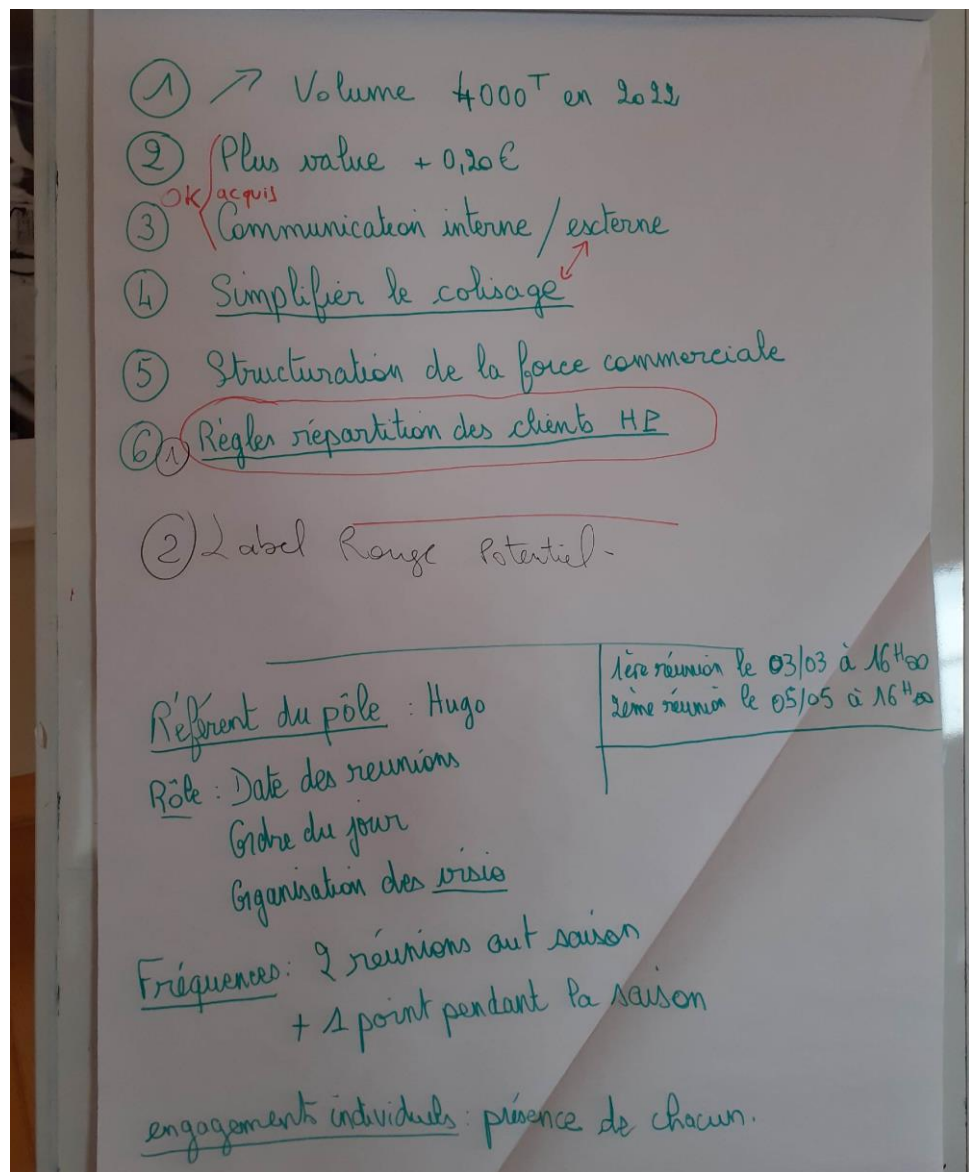 ① ↗ Volume 4000T en 2022
② Plus value + 0,20€
OK acquis
③ Communication interne / externe
④ Simplifier le colisage
⑤ Structuration de la force commerciale
⑥ ① Règles répartition des clients HP
② Label Rouge Potentiel.
1ère réunion le 03/03 à 16H00
2ème réunion le 05/05 à 16H00
Référent du pôle : Hugo
Rôle : Date des reunions
Ordre du jour
Organisation des visio
Fréquences : 2 réunions avt saison
+ 1 point pendant la saison
engagements individuels : présence de chacun.